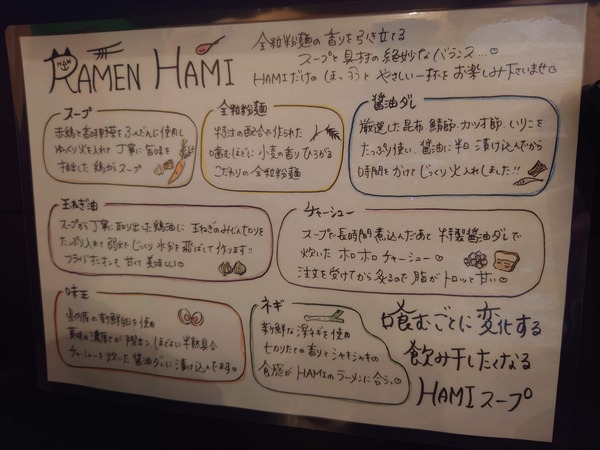 RAMEN HAMI
全粒粉麺の香りを引き立てる
スープと具材の絶妙なバランス...♡
HAMIだけの ほっ とやさしい一杯をお楽しみ下さいませ♡
スープ
香味野菜をふんだんに使用し
ゆっくり火を入れて丁寧に旨味を
抽出した 鶏ガラスープ
全粒粉麺
特注の配合で作られた
噛むほどに 小麦の香りひろがる
こだわりの全粒粉麺
醤油ダレ
厳選した昆布 鯖節 カツオ節 いりこを
たっぷり使い 醤油に半日 漬け込んでから
時間をかけてじっくり火入れしました!!
玉ねぎ油
スープから丁寧に取り出した鶏油に 玉ねぎのみじん切りを
たっぷり入れて 弱火で じっくり 水分を飛ばして作ります!!
フライドオニオンも 甘くて美味しい♡
チャーシュー
スープで長時間煮込んだあと 特製醤油ダレで
炊いた ホロホロ チャーシュー♡
注文を受けてから炙るので 脂がトロッと甘い♡
味玉
県内産の新鮮卵を使用
黄味の濃厚さが際立つ ほどよい半熟具合
チャーシューを炊いた 醤油ダレに漬け込んでます♡
ネギ
新鮮な 青ネギを使用
切りたての香りとシャキシャキの
食感が HAMIのラーメンに合う♡
喰むごとに変化する
飲み干したくなる
HAMIスープ